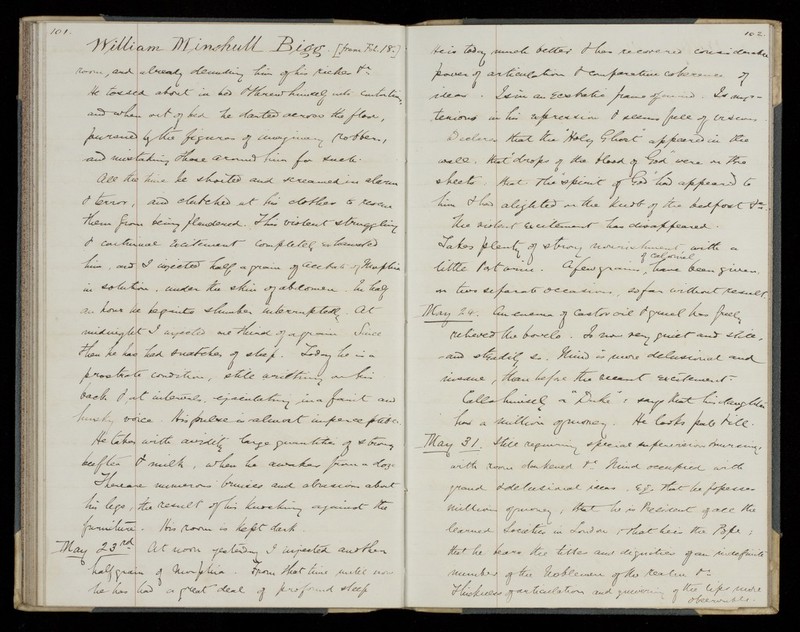 101.
William Minshull Bigg. [from Fol. 18.]
room, and already demanding him of his riches &c
He tossed about in bed & threw himself into contortions,
and when out of bed he darted across the floor,
pursued by the figures of imaginary robbers,
and mistaking those around him for such.
All the time he shouted and screamed in alarm
& terror, and clutched at his clothes to rescue
them from being plundered. This violent struggling
& continual excitement completely exhausted
him, and I injected half a grain of acetate of Morphia
in solution, under the skin of abdomen. In half
an hour he began to slumber interruptedly. At
midnight I injected one third of a grain. Since
then he has had snatches of sleep. Today he is in a
prostrate condition, still writhing on his
back & at intervals, ejaculating in a faint and
husky voice. His pulse is almost imperceptible.
He takes with avidity large quantities of strong
beef tea & milk, when he awakes from a doze.
There are numerous bruises and abrasions about
his legs, the result of his knocking against the
furniture. His room is kept dark.
May 23rd At noon yesterday I injected another
half grain of Morphia. From that time until now
he has had a great deal of profound sleep
102.
He is today much better & has recovered considerable
power of articulation & comparative coherence of
ideas. Is in an ecstatic frame of mind. Is mys-
terious in his expression & seems full of visions.
Declares that the "Holy Ghost" appeared in the
wall. that "drops of the blood of God" were on the
sheets, that the "spirit of God" had appeared to
him & had alighted on the knob of the bedpost &c.
The violent excitement has disappeared.
Takes plenty of strong nourishment, with a
little Port wine. A few grains of calomel have been given,
on two separate occasions, so far without result.
May 24. An enema of Castor oil & gruel has freely
relieved the bowels. Is now very quiet and still,
and steadily so. Mind is more delusional and
insane, than before the recent excitement.
Calls himself a "Duke" & says that his daughter
has a million of money. He looks pale & ill.
May 31. Still requiring special supervision & nursing
with room darkened &c. Mind occupied with
grand & delusional ideas. e.g. that he possesses
millions of money, that he is President of all the
learned Societies in London, that he is the Pope;
that he bears the titles and dignities of an indefinite
number of the Noblemen of the realm &c
Thickness of articulation and quivering of the lips mere
observable.